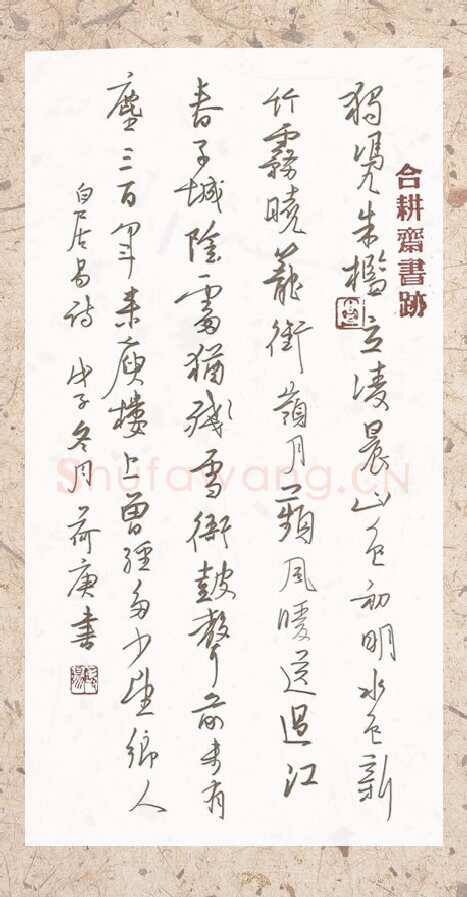 合耕齋書跡
獨凴朱檻立凌晨山色初明水色新
竹霧曉籠銜嶺月蘋風暖送過江
春子城陰處猶殘雪衙鼓聲前未有
塵三百年来庾樓上曾經多少望鄉人
白居易詩 戊子冬月荷庚書
Shufawang.CN